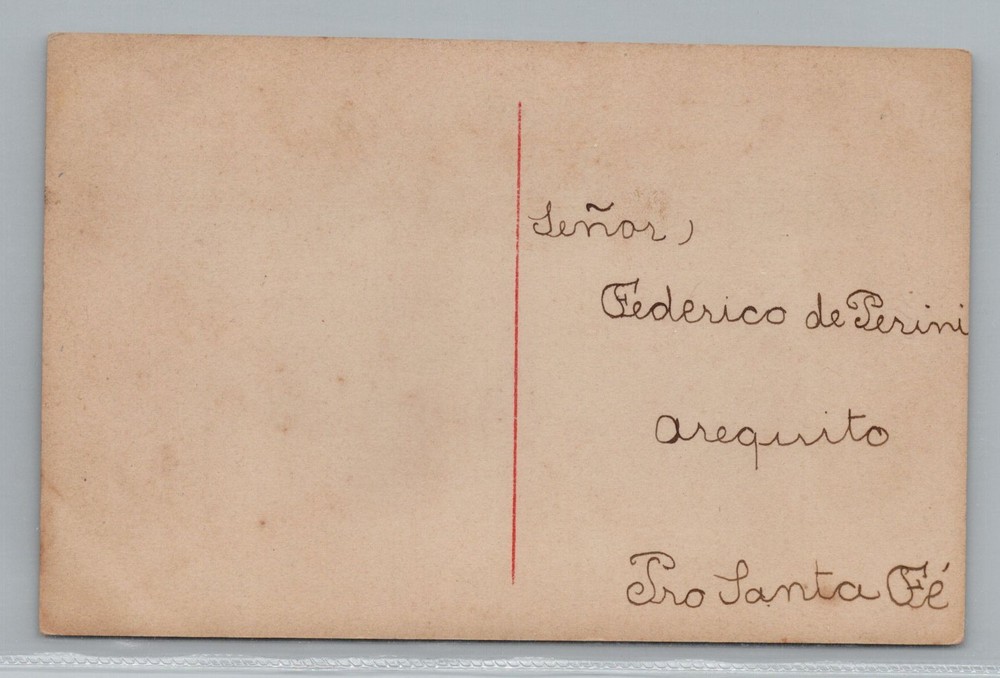 Señor,
Federico de Perini
Arequito
Pro Santa Fé